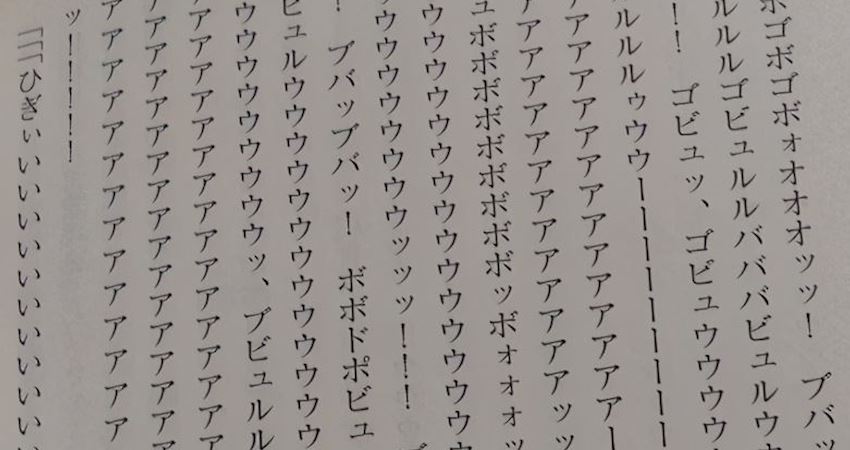 ボゴボゴボォオオオッッ！　プバッ
ルルルゴビュルルバババビュルウウ
！！　ゴビュッ、ゴビュウウウウ
ルルルゥウウーーーーーーーーー
アアアアアアアアアアアアアアー
アアアアアアアアアアアアアッッ
ュボボボボボボボボボッボォォォッ
ウウウウウウウウウウウウウウウウ
ウウウウウウウウッッッ！！！
！　ブバッブバッ！　ボボドポビュ
ビュルウウウウウウウウウウウウウ
ウウウウウウウウウッ、ブビュルル
アアアアアアアアアアアアアアアア
アアアアアアアアアアアアアアア
アアアアアアアアアアアアアアア
ッ！！！！！
「「「ひぎぃいいいいいいいいいいい